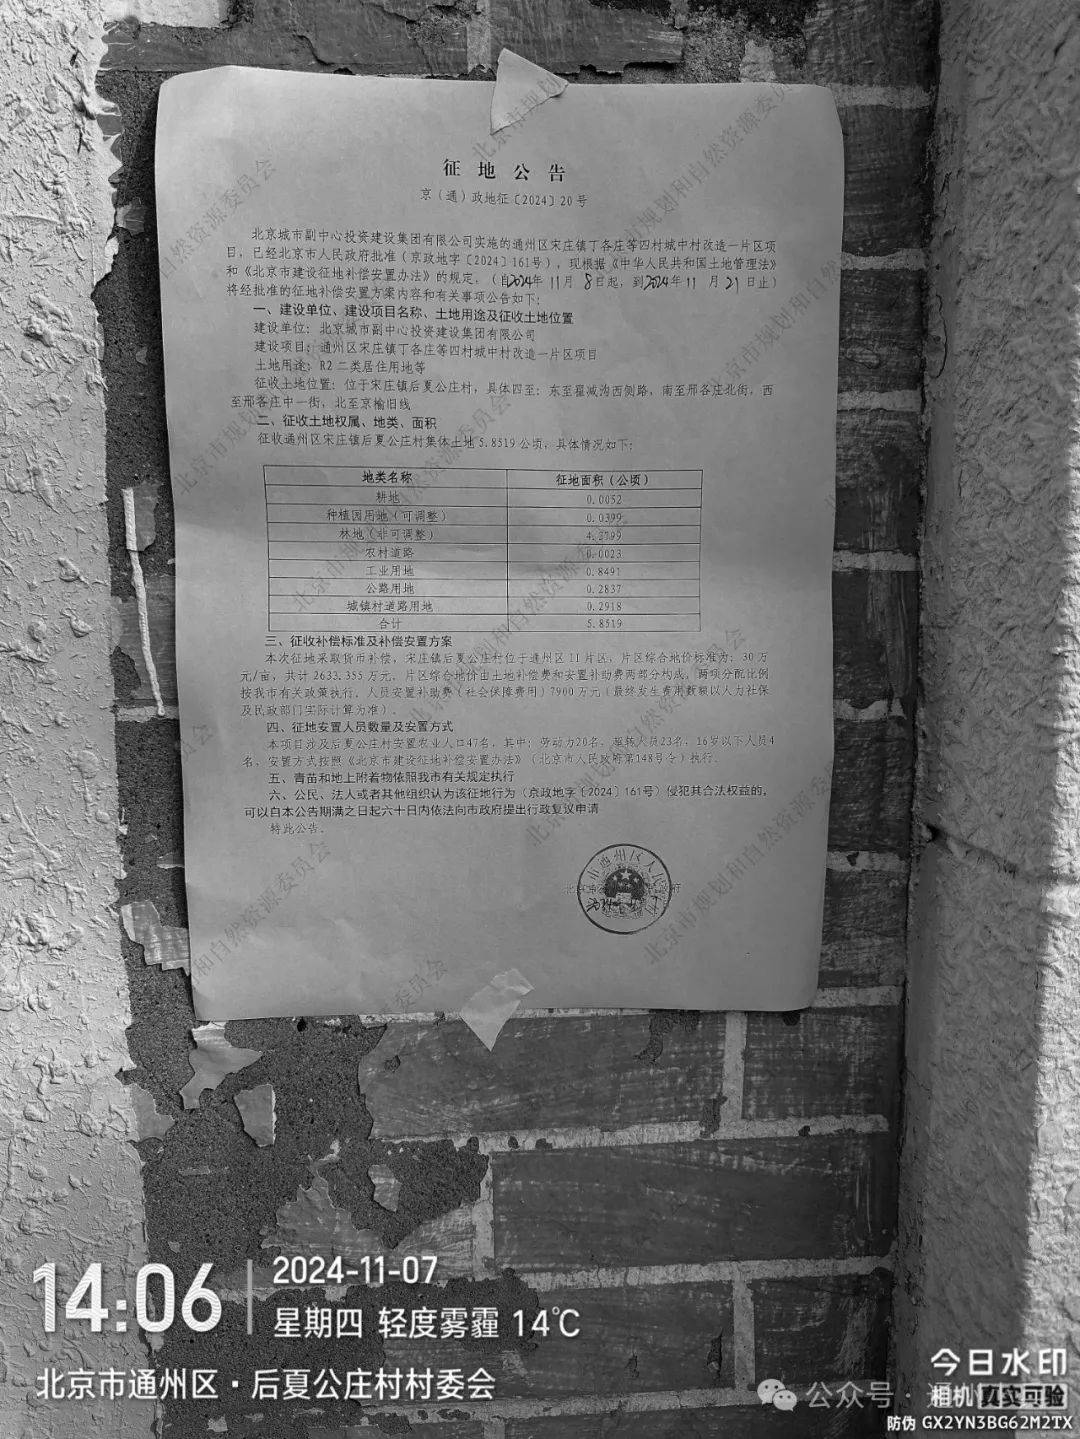 征地公告
京（通）政地征〔2024〕20号
北京城市副中心投资建设集团有限公司实施的通州区宋庄镇丁各庄等四村城中村改造一片区项
目，已经北京市人民政府批准（京政地字〔2024〕161号），现根据《中华人民共和国土地管理法》
和《北京市建设征地补偿安置办法》的规定，（自2024年11月8日起，到2024年11月21日止）
将经批准的征地补偿安置方案内容和有关事项公告如下：
一、建设单位、建设项目名称、土地用途及征收土地位置
建设单位：北京城市副中心投资建设集团有限公司
建设项目：通州区宋庄镇丁各庄等四村城中村改造一片区项目
土地用途：R2二类居住用地等
征收土地位置：位于宋庄镇后夏公庄村，具体四至：东至翟减沟西侧路，南至邢各庄北街，西
至邢各庄中一街，北至京榆旧线
二、征收土地权属、地类、面积
征收通州区宋庄镇后夏公庄村集体土地5.8519公顷，具体情况如下：
地类名称 征地面积（公顷）
耕地 0.0052
种植园用地（可调整） 0.0399
林地（非可调整） 4.3799
农村道路 0.0023
工业用地 0.8491
公路用地 0.2837
城镇村道路用地 0.2918
合计 5.8519
三、征收补偿标准及补偿安置方案
本次征地采取货币补偿，宋庄镇后夏公庄村位于通州区II片区，片区综合地价标准为：30万
元/亩，共计2633.355万元，片区综合地价由土地补偿费和安置补助费两部分构成，两项分配比例
按我市有关政策执行。人员安置补助费（社会保障费用）7900万元（最终发生费用数额以人力社保
及民政部门实际计算为准）。
四、征地安置人员数量及安置方式
本项目涉及后夏公庄村安置农业人口47名，其中：劳动力20名，超转人员23名，16岁以下人员4
名，安置方式按照《北京市建设征地补偿安置办法》（北京市人民政府第148号令）执行。
五、青苗和地上附着物依照我市有关规定执行
六、公民、法人或者其他组织认为该征地行为（京政地字〔2024〕161号）侵犯其合法权益的，
可以自本公告期满之日起六十日内依法向市政府提出行政复议申请
特此公告。
14:06
2024-11-07
星期四 轻度雾霾 14℃
北京市通州区·后夏公庄村村委会
今日水印
相机 真实可验
防伪 GX2YN3BG62M2TX
公众号